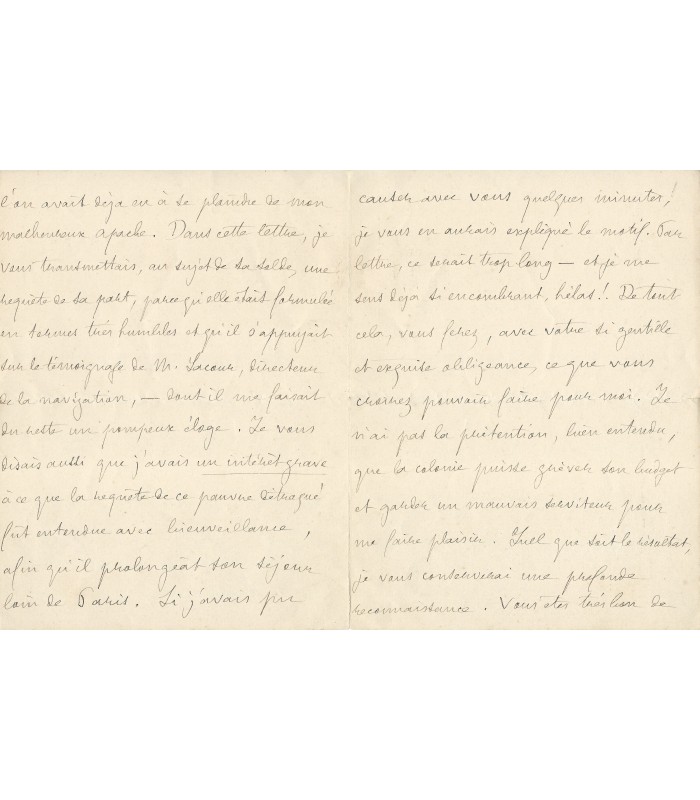 l'on avait déja eu à se plaindre de mon
malheureux apache. Dans cette lettre, je
vous transmettais, au sujet de sa solde, une
requête de sa part, parce qu'elle était formulée
en termes très humbles et qu'il s'appuyait
sur le témoignage de M. Lacour, directeur
de la navigation, — dont il me faisait
du reste un pompeux éloge. Je vous
disais aussi que j'avais un intérêt grave
à ce que la requête de ce pauvre détraqué
fût entendue avec bienveillance,
afin qu'il prolongeât son séjour
loin de Paris. Si j'avais pu
causer avec vous quelques minutes!
je vous en aurais expliqué le motif. Par
lettre, ce serait trop long — et je me
sens déja si encombrant, hélas!. De tout
cela, vous ferez, avec votre si gentille
et exquise obligeance, ce que vous
croirez pouvoir faire pour moi. Je
n'ai pas la prétention, bien entendu,
que la colonie puisse grèver son budget
et garder un mauvais serviteur pour
me faire plaisir. Quel que soit le résultat,
je vous conserverai une profonde
reconnaissance. Vous êtes très bon de